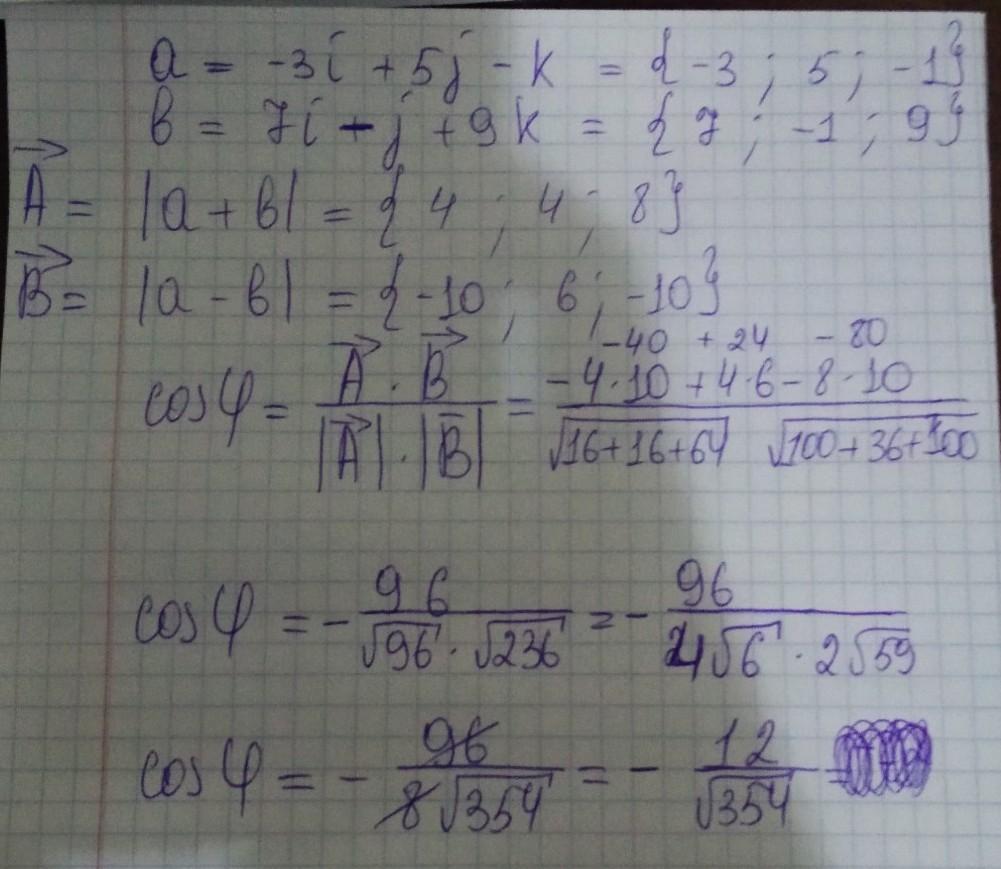 a = -3i + 5j - k = {-3 ; 5 ; -1}
b = 7i - j + 9k = {7 ; -1 ; 9}
A⃗ = |a + b| = {4 ; 4 ; 8}
B⃗ = |a - b| = {-10 ; 6 ; -10}
-40 + 24 - 80
cos φ = (A⃗ · B⃗) / (|A⃗| · |B⃗|) = (-4·10 + 4·6 - 8·10) / (√(16+16+64) √(100+36+100))
cos φ = - 96 / (√96 · √236) = - 96 / (4√6 · 2√59)
cos φ = - 96 / (8√354) = - 12 / √354